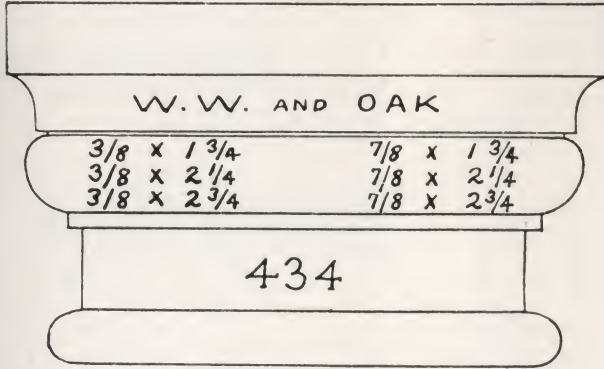 W.W. AND OAK
3/8 X 1 3/4 7/8 X 1 3/4
3/8 X 2 1/4 7/8 X 2 1/4
3/8 X 2 3/4 7/8 X 2 3/4
434